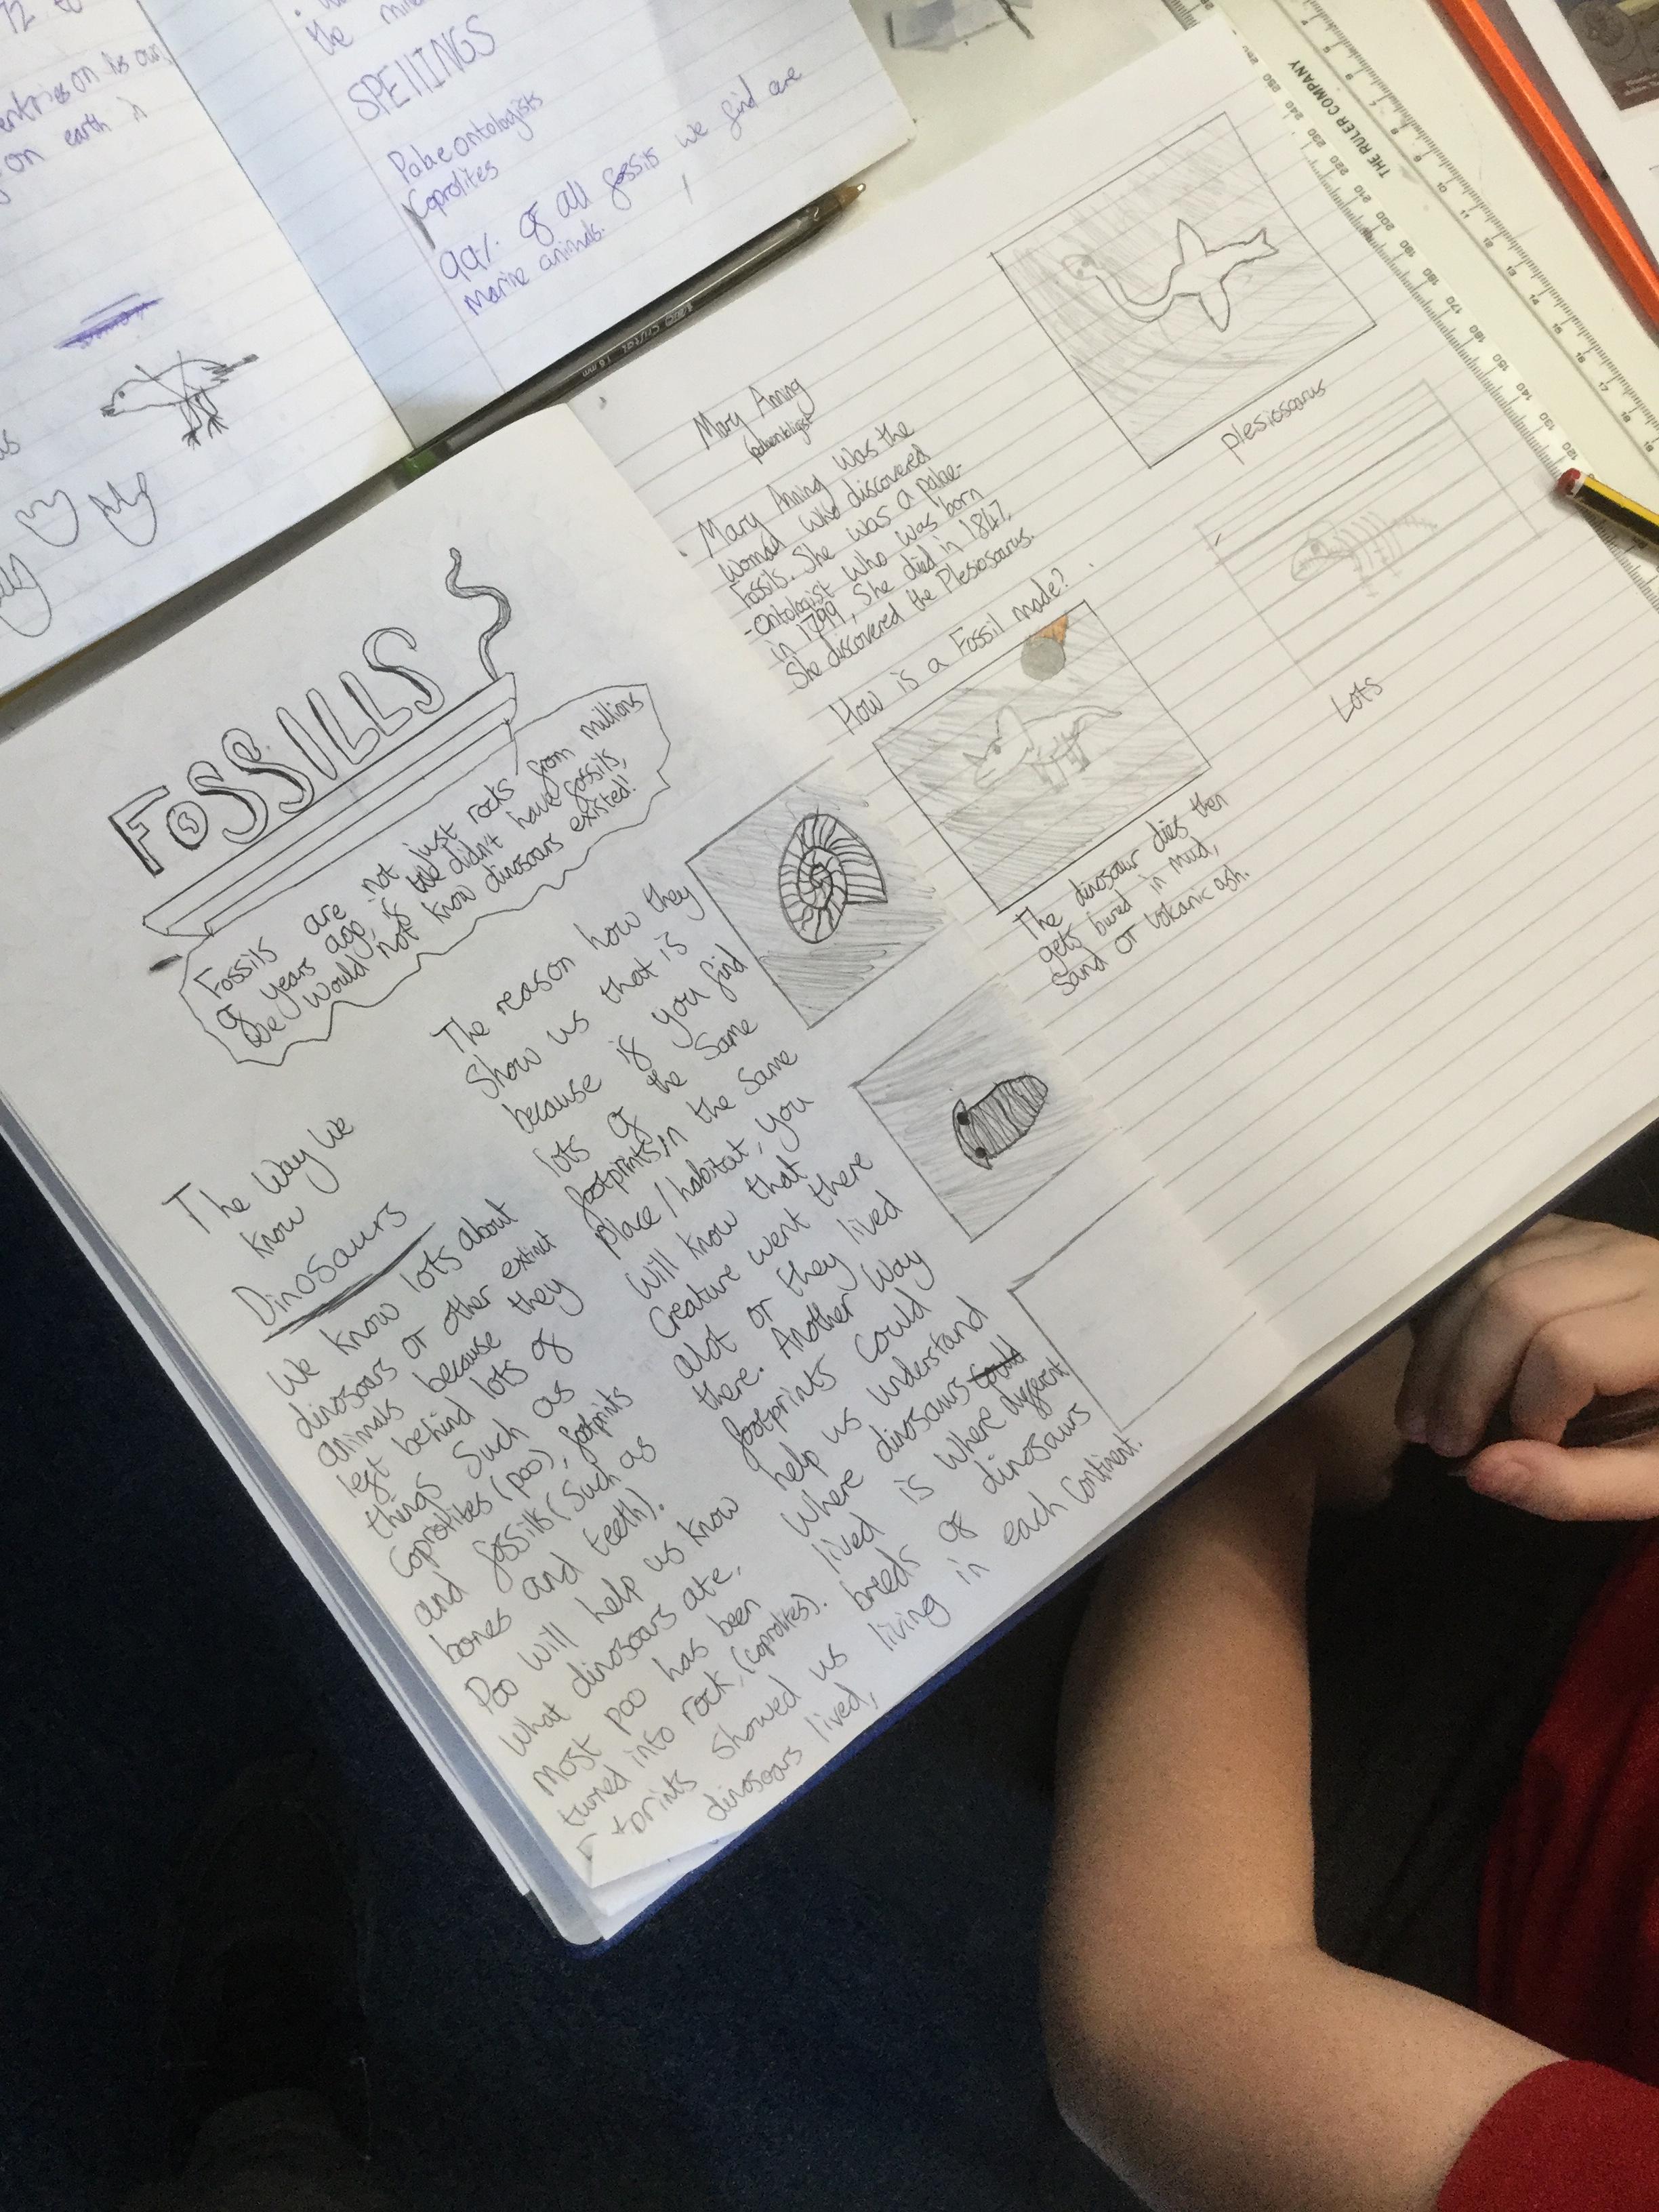 72 to
entries on its own
on earth is
the
SPELLINGS
Palaeontologists
Coprolites
99% of all fossils we find are
Marine animals.
THE RULER COMPANY
FOSSILLS
Fossils are not just rocks from millions
of years ago, if we didn't have fossils,
we would not know dinosaurs existed!
The Way We
know
Dinosaurs
We know lots about
dinosours or other extinct
animals because they
left behind lots of
things Such as
Coprolites (poo), footprints
and fossils (Such as
bones and teeth).
Poo will help us know
What dinosaurs ate,
Most poo has been
turned into rock, (coprolites).
showed us
dinosours lived,
The reason how they
Show us that is
because if you find
lots of the Same
footprints, in the Same
place/habitat, you
Will know that
Creature went there
alot or they lived
there. Another Way
footprints Could
help us understand
Where dinosaurs Could
lived is Where different
breeds of dinosaurs
living in each Continent.
Mary Anning
Mary Anning Was the
Woman Who discovered
Fossils. She was a palae-
-ontologist Who was born
in 1799, She died in 1847.
She discovered the Plesiosaurus.
How is a Fossil made?
The dinosaur dies then
gets buried in Mud,
Sand or Volcanic ash.
plesiosaurus
Lots